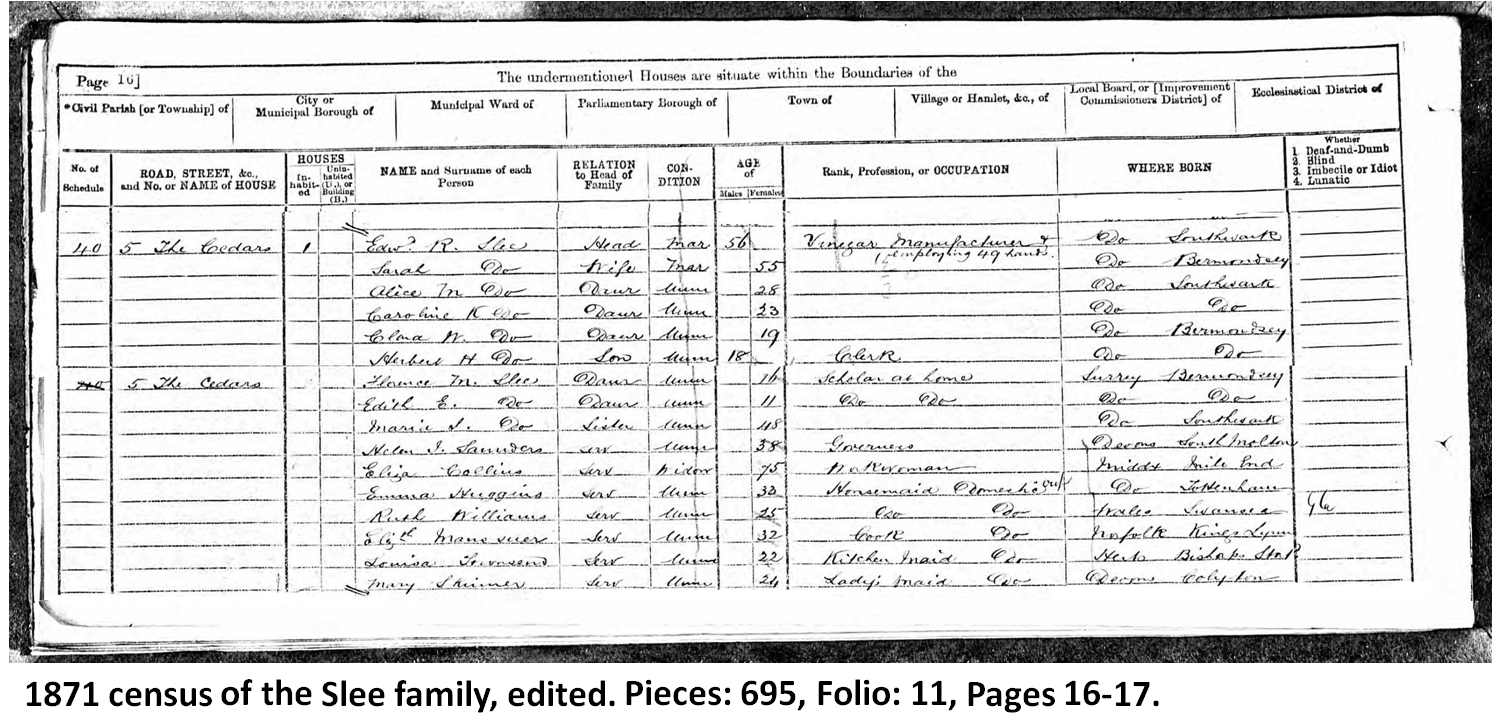 Page 16]
The undermentioned Houses are situate within the Boundaries of the
*Civil Parish [or Township] of City or Municipal Borough of Municipal Ward of Parliamentary Borough of Town of Village or Hamlet, &c., of Local Board, or [Improvement Commissioners District] of Ecclesiastical District of
No. of Schedule ROAD, STREET, &c., and No. or NAME of HOUSE HOUSES In-habit-ed Unin-habited (U.), or Building (B.) NAME and Surname of each Person RELATION to Head of Family CON-DITION AGE of Males Females Rank, Profession, or OCCUPATION WHERE BORN Whether 1. Deaf-and-Dumb 2. Blind 3. Imbecile or Idiot 4. Lunatic
40 5 The Cedars 1 Edwd. R. Slee Head Mar 56 Vinegar Manufacturer & employing 49 hands. Do Southwark
Sarah Do Wife Mar 55 Do Bermondsey
Alice M Do Daur Unm 28 Do Southwark
Caroline K Do Daur Unm 23 Do Do
Clara W. Do Daur Unm 19 Do Bermondsey
Herbert H Do Son Unm 18 Clerk. Do Do
40 5 The Cedars Florence M. Slee Daur Unm 16 Scholar at home Surrey Bermondsey
Edith E. Do Daur Unm 11 Do Do Do Do
Maria S. Do Sister Unm 48 Do Southwark
Helen J. Saunders Serv Unm 38 Governess Devons South Molton
Eliza Collins Serv Widow 75 Middx Mile End
Emma Huggins Serv Unm 33 Housemaid Domestic Do Tottenham
Ruth Williams Serv Unm 25 Do Do Wales Swansea
Elizth Serv Unm 32 Cook Do Norfolk Kings Lynn
Louisa Townsend Serv Unm 22 Kitchen Maid Do Herts Bishop
Mary Skinner Serv Unm 24 Lady's Maid Do Devons Colyton
1871 census of the Slee family, edited. Pieces: 695, Folio: 11, Pages 16-17.